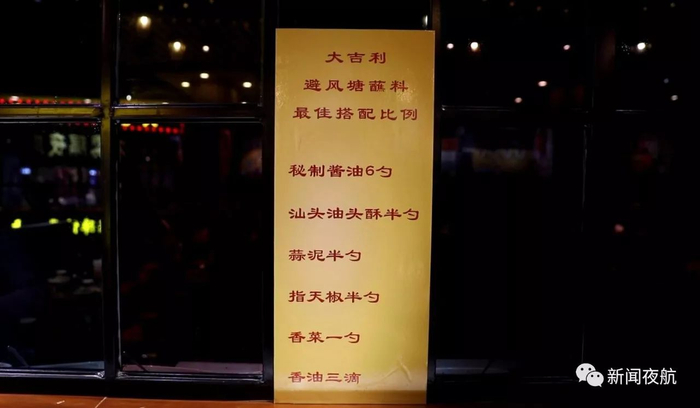 大吉利
避风塘蘸料
最佳搭配比例
秘制酱油6勺
汕头油头酥半勺
蒜泥半勺
指天椒半勺
香菜一勺
香油三滴
新闻夜航